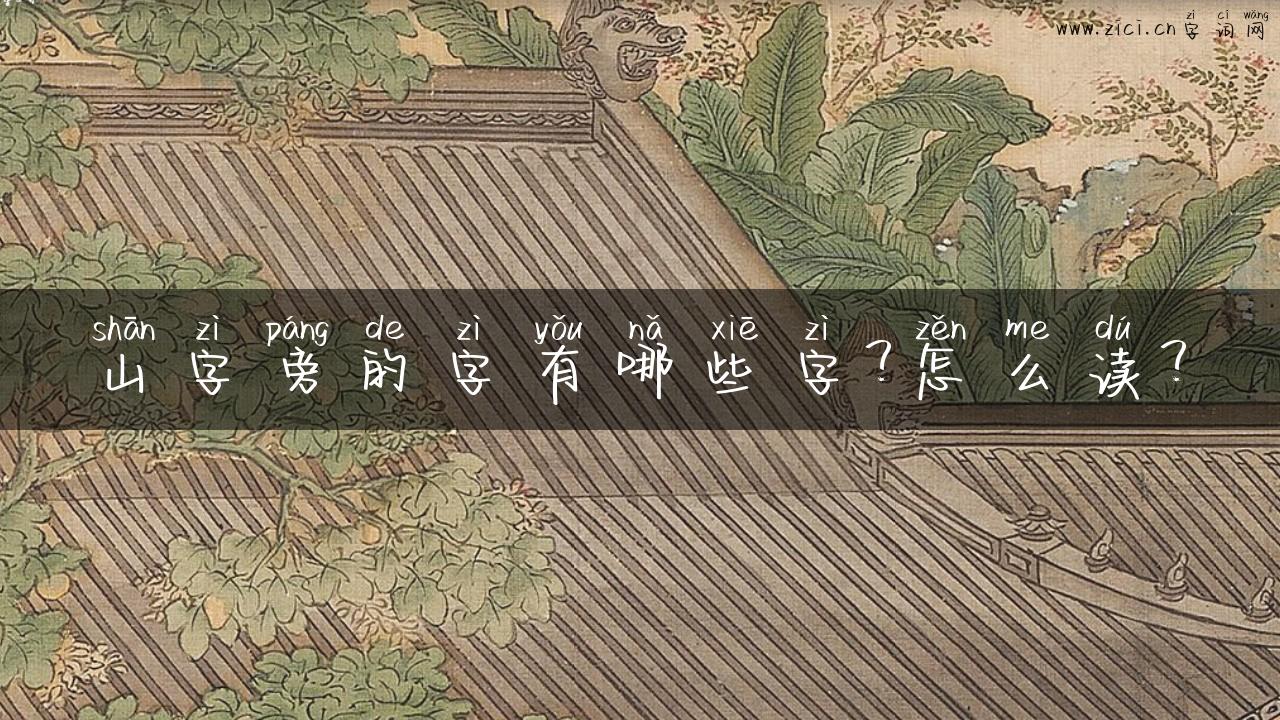 zì cí wǎng
www.zici.cn 字词网
shān zì páng de zì yǒu nǎ xiē zì zěn me dú
山字旁的字有哪些字?怎么读?